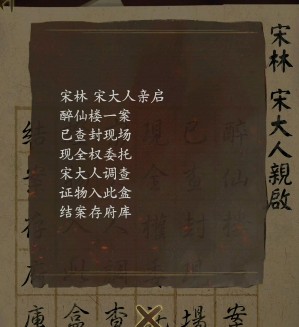 宋林 宋大人亲启
醉仙楼一案
已查封现场
现全权委托
宋大人调查
证物入此盒
结案存府库
宋林 宋大人親啟
結案存府庫